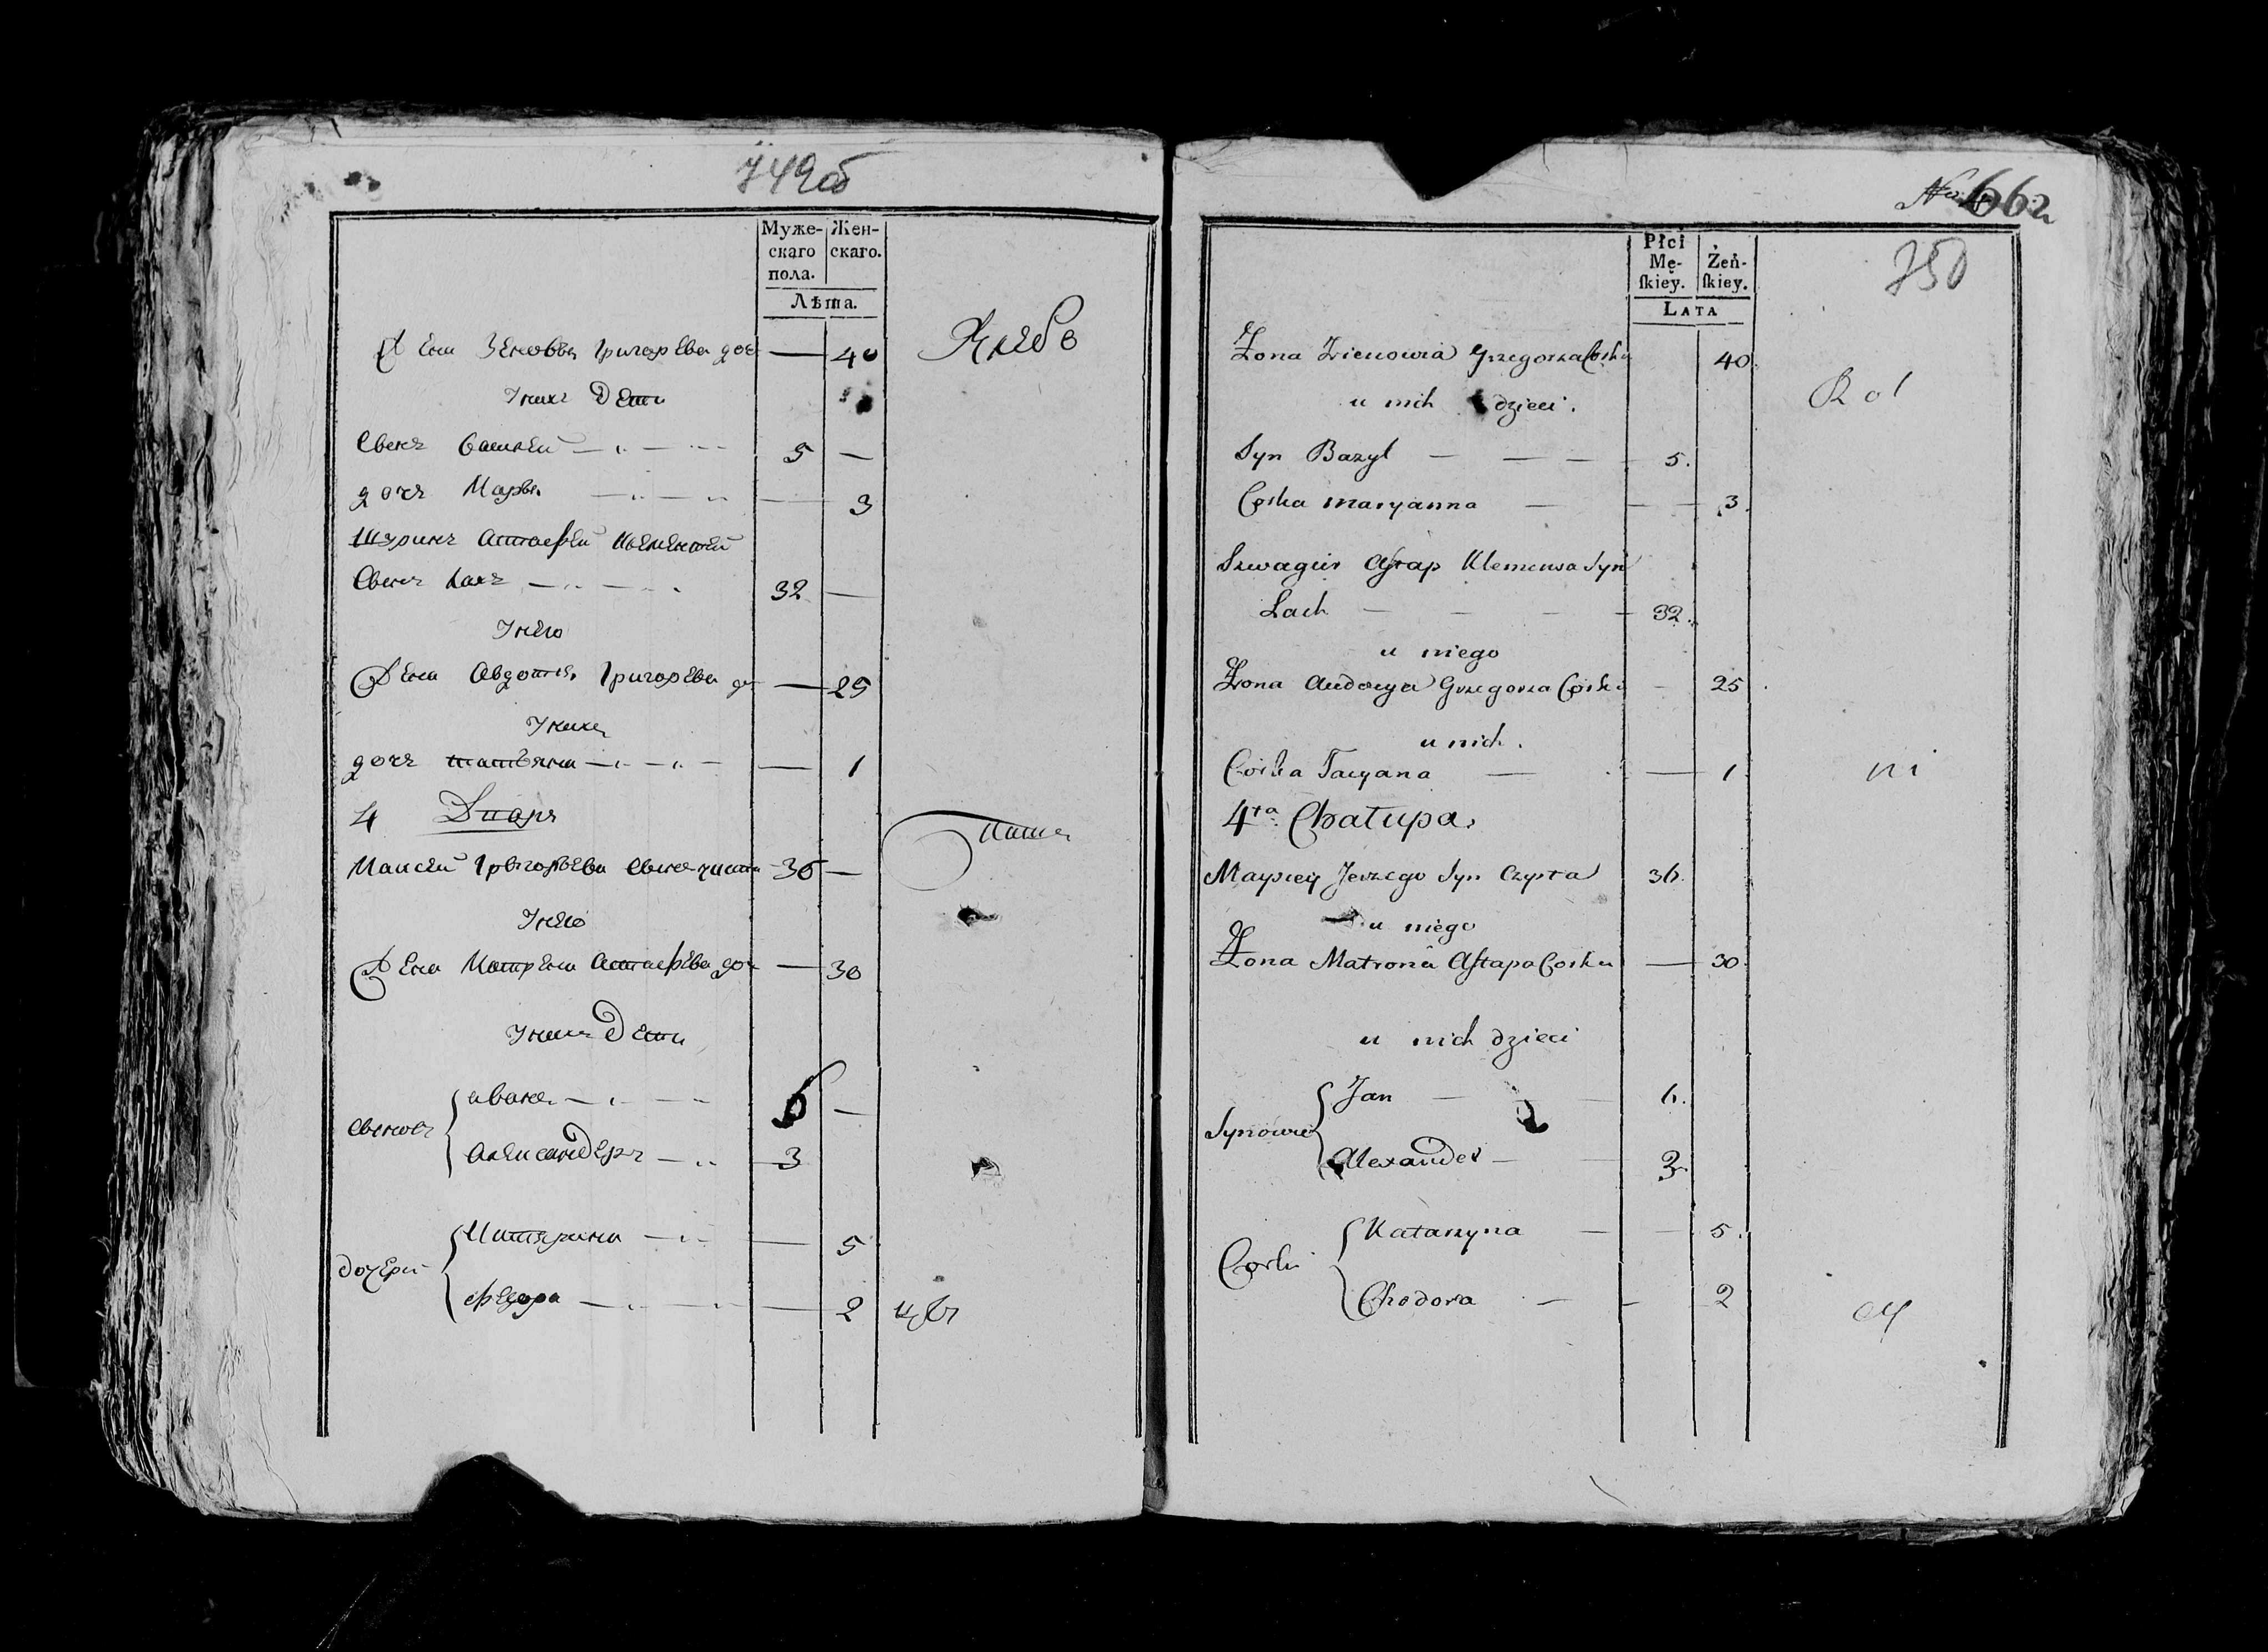 749об
Муже-
скаго
пола.
Жен-
скаго.
Лѣта.
Жена Зеновья Григорьева доч — 40
Хлебо
У них Дети
Сынъ Василей — 5 —
дочъ Марья — 3
Шуринъ Астафей
Сынъ Лахъ — 32 —
У него
Жена Авдотья Григорьева до — 25
У них
дочъ татьяна — 1
4 Дворъ
паше
Григорьевъ Сынъ чиста 36 —
У него
Жена Матрена Астафьева доч — 30
У них Дети
Сыновъ
иванъ — 6 —
Александеръ — 3
дочери
Катярина — 5
Федора — 2
цовъ
662
750
Płci
Mę-
ſkiey.
Żeń-
ſkiey.
LATA
Zona Zienowia Grzegorza Corka 40.
Rol
u nich dzieci.
Syn Bazyl — — — 5.
Corka Maryanna — — 3.
Szwagier Astap Klemensa Syn
Lach — — — 32.
u niego
Zona Audocya Grzegorza Corka — 25.
u nich.
Corka Tacyana — — 1.
ni
4ta Chałupa.
Jerzego Syn Czysta 36.
u niego
Zona Matrona Astapa Corka — 30.
u nich dzieci
Synowie
Jan — 6.
Alexander — 3
Corki
Katarzyna — — 5.
Chodora — — 2